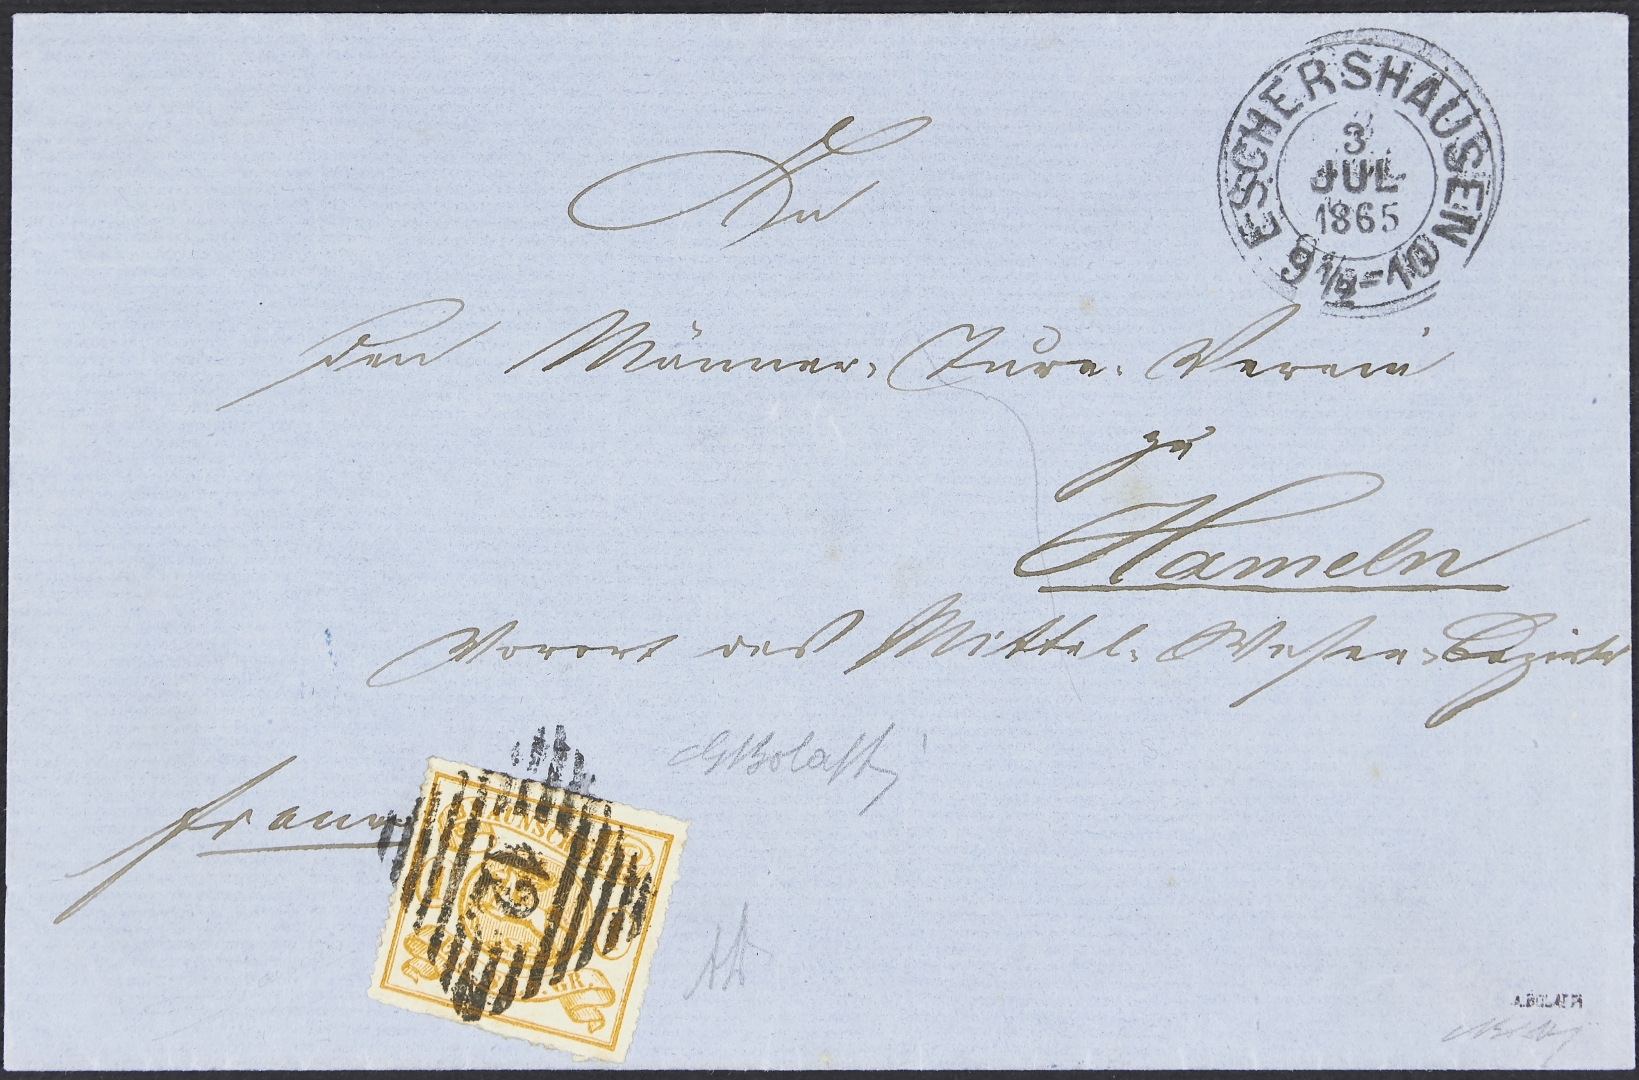 ESCHERSHAUSEN
3
JUL
1865
9½-10
An
den Männer-Turn-Verein
zu
Hameln
Vorort des Mittel-Weser-Bezirks
franco
12
1
GR.
A.BOLAFFI